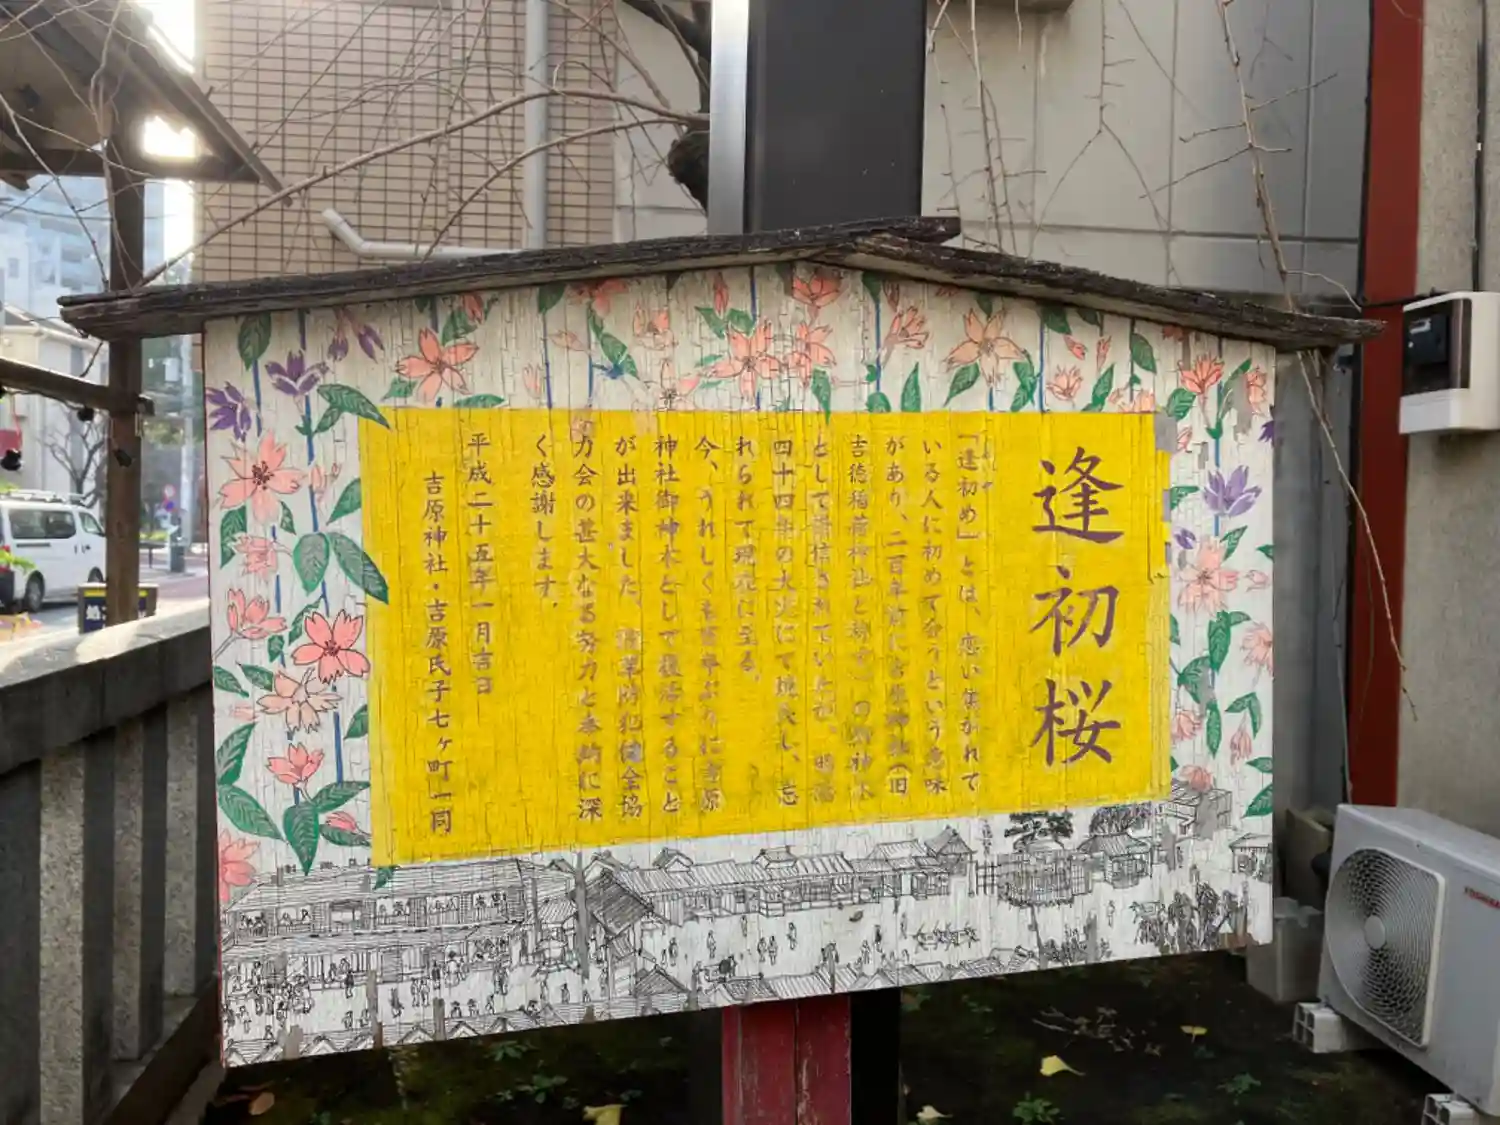 逢初桜
「逢初め」とは、恋い焦がれて
いる人に初めて会うという意味
があり、二百年前に吉原神社(旧
吉徳稲荷神社と称す)の御神木
として崇信されていたが、明治
四十四年の大火にて焼失し、忘
れられて現在に至る。
今、うれしくも百年ぶりに吉原
神社御神木として復活すること
が出来ました。浅草防犯健全協
力会の甚大なる労力と奉納に深
く感謝します。
平成二十五年一月吉日
吉原神社・吉原氏子七ヶ町一同